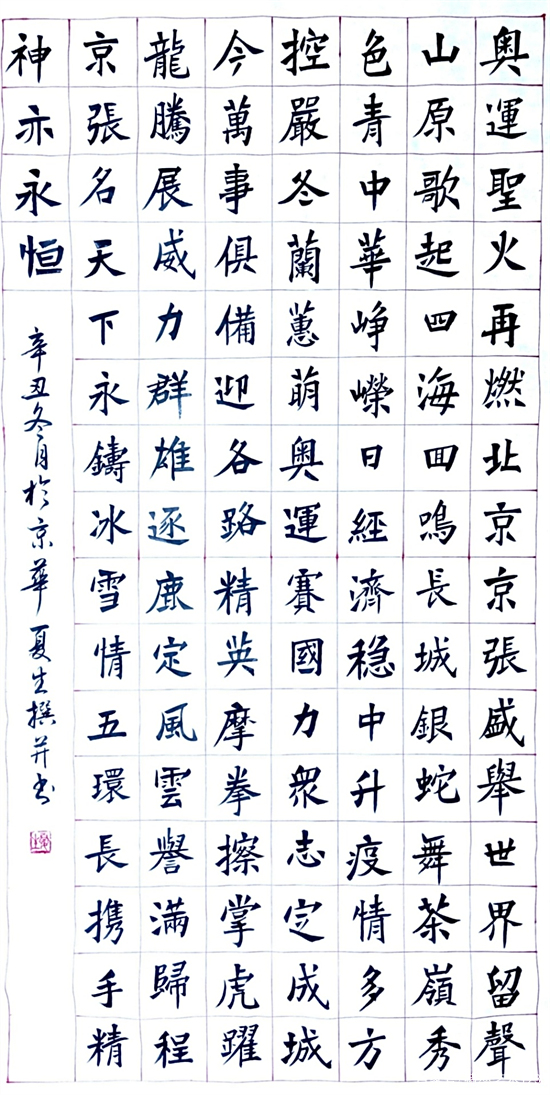 奥運聖火再燃北京京張盛舉世界留聲
山原歌起四海回鳴長城銀蛇舞茶嶺秀
色青中華峥嶸日經濟穩中升疫情多方
控嚴冬蘭蕙萌奥運賽國力衆志定成城
今萬事俱備迎各路精英摩拳擦掌虎躍
龍騰展威力群雄逐鹿定風雲譽滿歸程
京張名天下永鑄冰雪情五環長携手精
神亦永恒
辛丑冬月於京華夏生撰并书